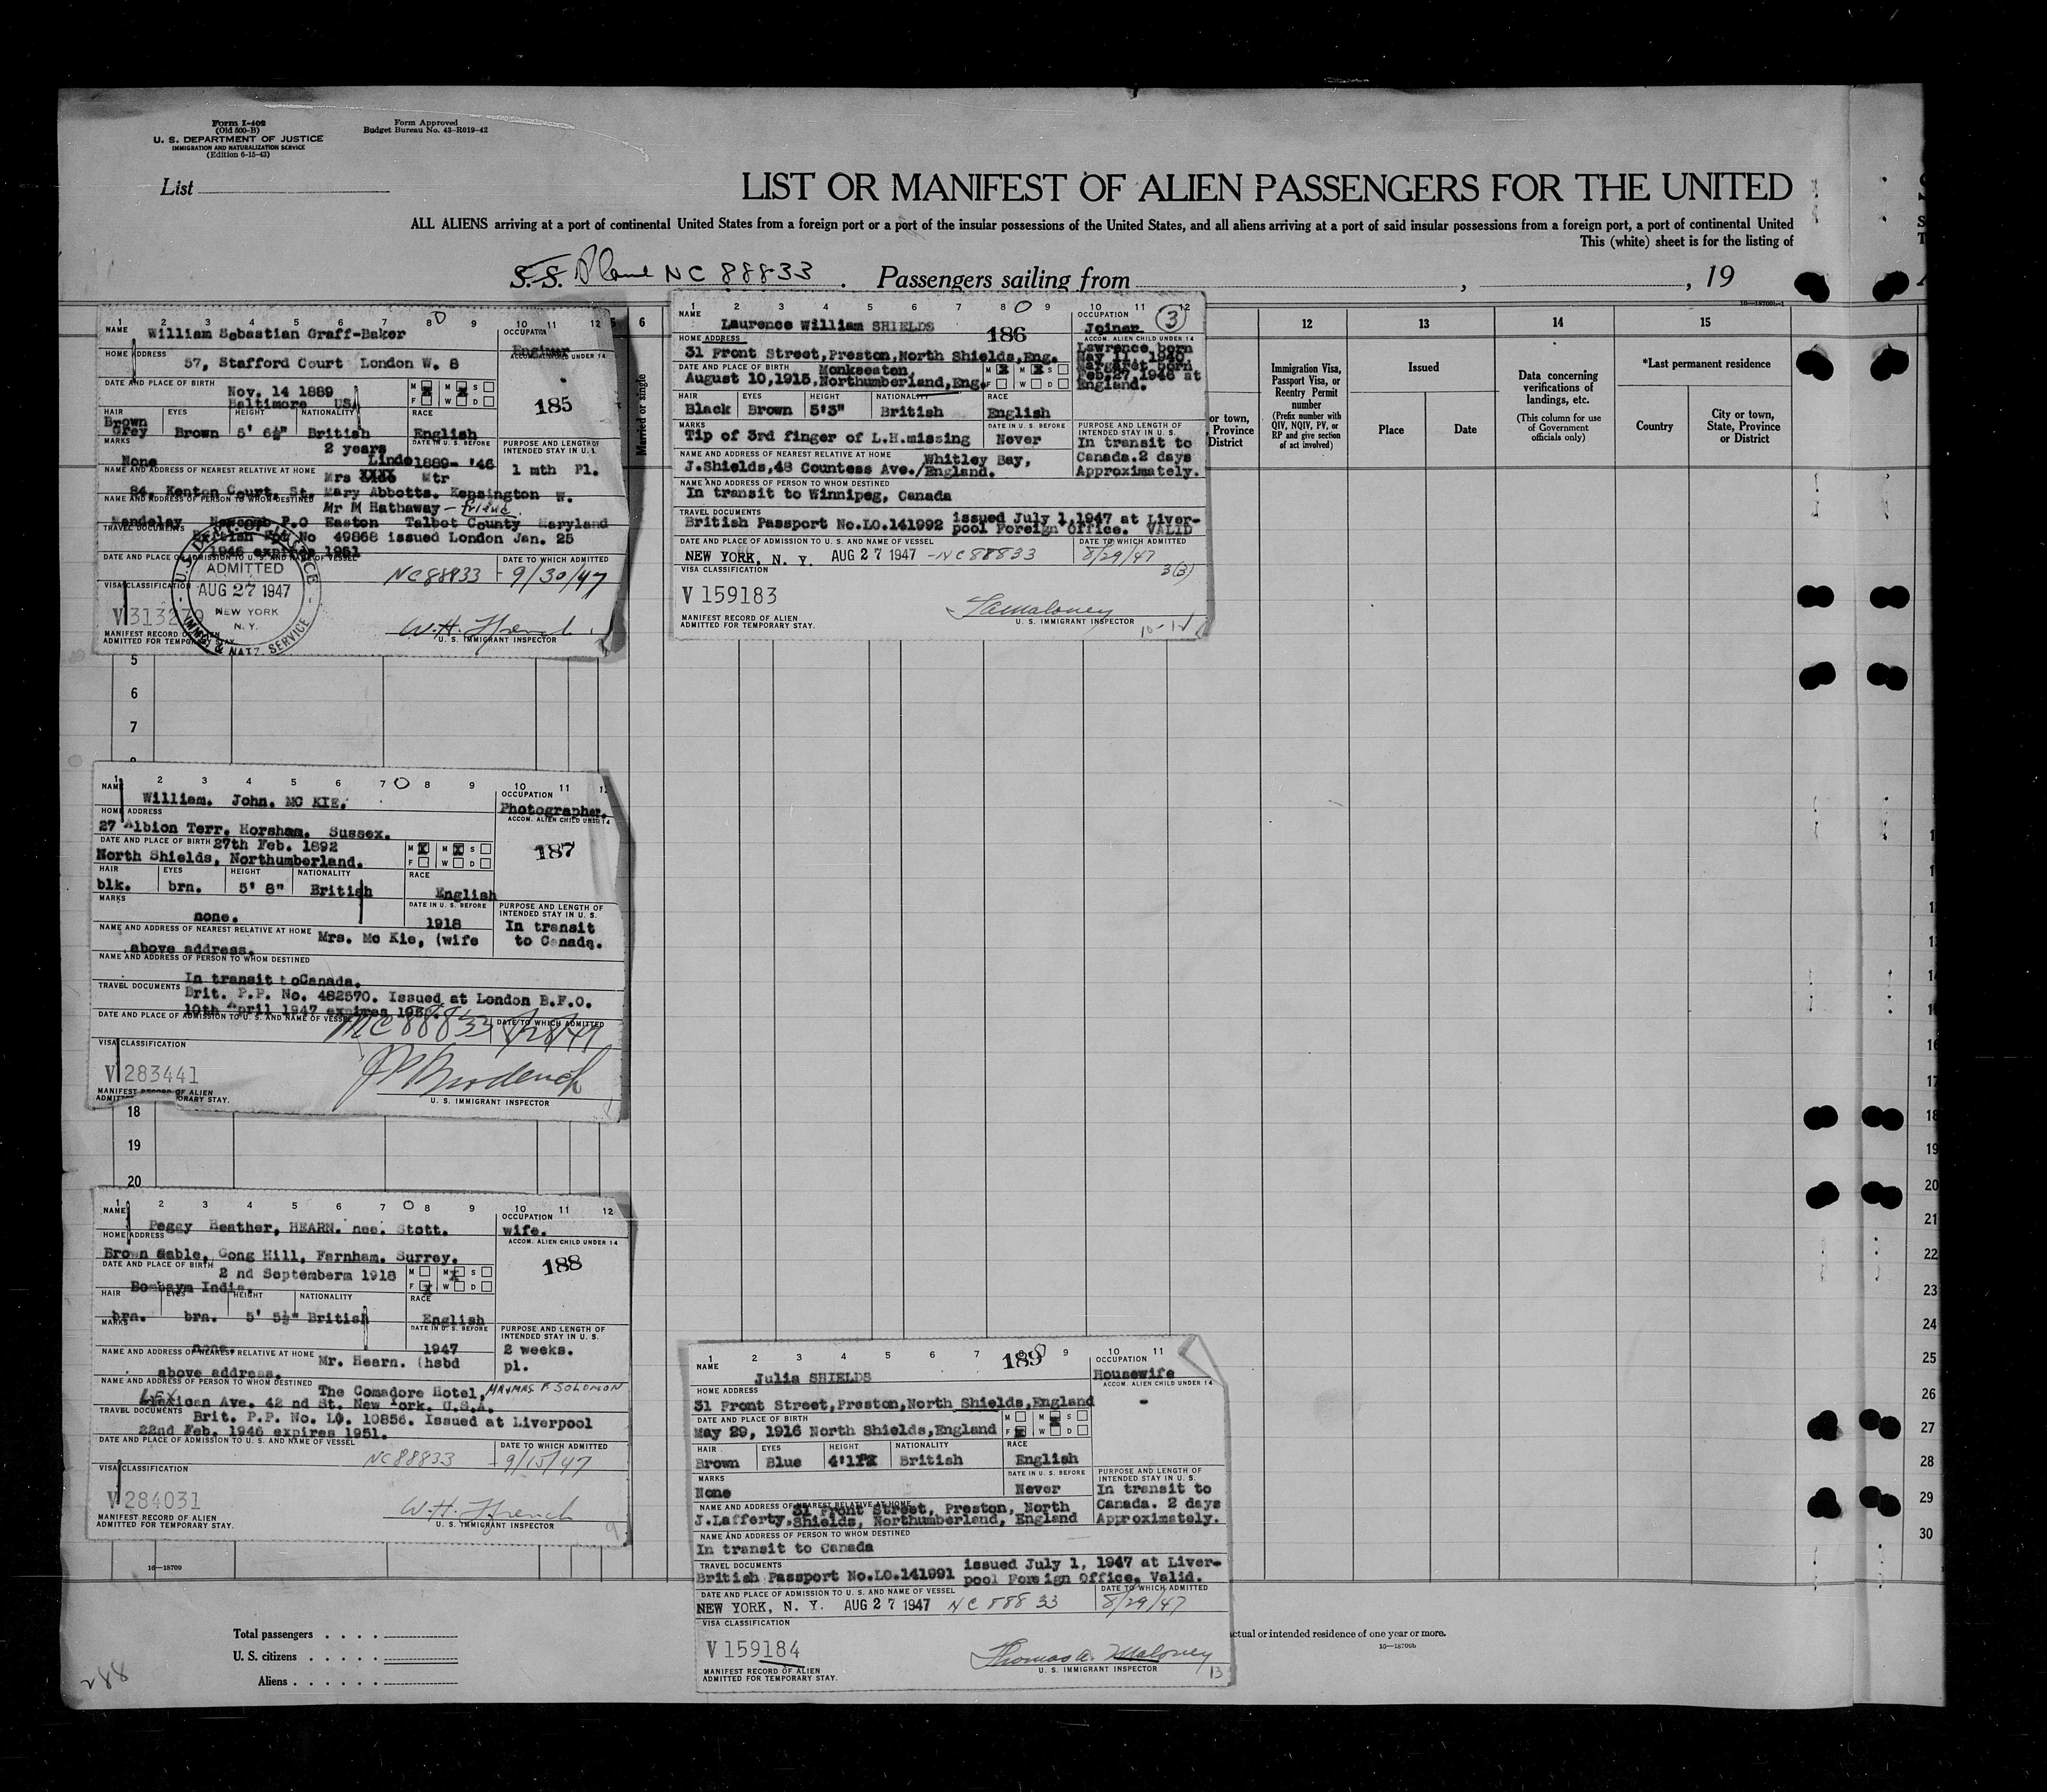 Form I-402
(Old 500-B)
U. S. DEPARTMENT OF JUSTICE
IMMIGRATION AND NATURALIZATION SERVICE
(Edition 6-15-43)
Form Approved
Budget Bureau No. 43-R019-42
List
LIST OR MANIFEST OF ALIEN PASSENGERS FOR THE UNITED
ALL ALIENS arriving at a port of continental United States from a foreign port or a port of the insular possessions of the United States, and all aliens arriving at a port of said insular possessions from a foreign port, a port of continental United
This (white) sheet is for the listing of
S. S. Plane NC 88833. Passengers sailing from , , 19
1 2 3 4 5 6 7 8 9 10 11 12
NAME William Sebastian Graff-Baker
OCCUPATION
HOME ADDRESS
57, Stafford Court London W. 8
ACCOM. ALIEN CHILD UNDER 14
DATE AND PLACE OF BIRTH
Nov. 14 1889
Baltimore USA
M M S
F W D
185
HAIR EYES HEIGHT NATIONALITY RACE
Brown
Grey Brown 5' 6½" British English
MARKS 2 years
DATE IN U. S. BEFORE
PURPOSE AND LENGTH OF INTENDED STAY IN U. S.
None Linde 1889- '46 1 mth Pl.
NAME AND ADDRESS OF NEAREST RELATIVE AT HOME Mrs XXXX Mtr
84, Kenton Court, St. Mary Abbotts. Kensington W.
NAME AND ADDRESS OF PERSON TO WHOM DESTINED Mr M Hathaway - friend.
Newcomb P.O Easton Talbot County Maryland
TRAVEL DOCUMENTS
British No 49868 issued London Jan. 25
1946 expires 1951
DATE AND PLACE OF ADMISSION TO U. S. AND NAME OF VESSEL
DATE TO WHICH ADMITTED
NC 88833 - 9/30/47
ADMITTED
AUG 27 1947
NEW YORK
N. Y.
IMM. & NATZ. SERVICE
VISA CLASSIFICATION
V 313270
MANIFEST RECORD OF ALIEN
ADMITTED FOR TEMPORARY STAY.
W. H. French
U. S. IMMIGRANT INSPECTOR
6
Married or single
1 2 3 4 5 6 7 8 9 10 11 12
NAME
Laurence William SHIELDS
186
OCCUPATION
Joiner
3
HOME ADDRESS
31 Front Street, Preston, North Shields, Eng.
ACCOM. ALIEN CHILD UNDER 14
Lawrence born
May 11, 1940
Margaret born
Feb. 27, 1946 at
England.
DATE AND PLACE OF BIRTH Monkseaton,
August 10, 1915, Northumberland, Eng.
M M S
F W D
HAIR EYES HEIGHT NATIONALITY RACE
Black Brown 5'3" British English
MARKS
Tip of 3rd finger of L.H. missing
DATE IN U. S. BEFORE
Never
PURPOSE AND LENGTH OF INTENDED STAY IN U. S.
In transit to
Canada. 2 days
Approximately.
NAME AND ADDRESS OF NEAREST RELATIVE AT HOME Whitley Bay,
J. Shields, 48 Countess Ave./England.
NAME AND ADDRESS OF PERSON TO WHOM DESTINED
In transit to Winnipeg, Canada
TRAVEL DOCUMENTS
British Passport No. LO. 141992 issued July 1, 1947 at Liver-
pool Foreign Office. VALID
DATE AND PLACE OF ADMISSION TO U. S. AND NAME OF VESSEL
DATE TO WHICH ADMITTED
NEW YORK, N. Y. AUG 27 1947 - NC 88833 8/29/47
VISA CLASSIFICATION
3(3)
V 159183
MANIFEST RECORD OF ALIEN
ADMITTED FOR TEMPORARY STAY.
U. S. IMMIGRANT INSPECTOR
16-18709b-1
12 13 14 15
or town, Province District
Immigration Visa, Passport Visa, or Reentry Permit number
(Prefix number with QIV, NQIV, PV, or RP and give section of act involved)
Issued
Place Date
Data concerning verifications of landings, etc.
(This column for use of Government officials only)
*Last permanent residence
Country
City or town, State, Province or District
5
6
7
1 2 3 4 5 6 7 8 9 10 11
NAME
William. John. MC KIE.
OCCUPATION
Photographer.
HOME ADDRESS
27 Albion Terr. Horsham. Sussex.
ACCOM. ALIEN CHILD UNDER 14
DATE AND PLACE OF BIRTH 27th Feb. 1892
North Shields, Northumberland.
M M S
F W D
187
HAIR EYES HEIGHT NATIONALITY RACE
blk. brn. 5' 8" British English
MARKS
none.
DATE IN U. S. BEFORE
1918
PURPOSE AND LENGTH OF INTENDED STAY IN U. S.
In transit
to Canada.
NAME AND ADDRESS OF NEAREST RELATIVE AT HOME Mrs. Mc Kie, (wife
above address.
NAME AND ADDRESS OF PERSON TO WHOM DESTINED
In transit toCanada.
TRAVEL DOCUMENTS
Brit. P.P. No. 482570. Issued at London B.F.O.
10th April 1947 expires
DATE AND PLACE OF ADMISSION TO U. S. AND NAME OF VESSEL
DATE TO WHICH ADMITTED
NC 88833
VISA CLASSIFICATION
V 283441
MANIFEST RECORD OF ALIEN
U. S. IMMIGRANT INSPECTOR
18
19
20
1 2 3 4 5 6 7 8 9 10 11 12
NAME
Peggy Heather, HEARN. nee. Stott.
OCCUPATION
wife.
HOME ADDRESS
Brown Gable, Gong Hill, Farnham. Surrey.
ACCOM. ALIEN CHILD UNDER 14
DATE AND PLACE OF BIRTH
2 nd Septemberm 1918
Bombaym India.
M M S
F W D
188
HAIR EYES HEIGHT NATIONALITY RACE
brn. brn. 5' 5½" British English
MARKS
none.
DATE IN U. S. BEFORE
1947
PURPOSE AND LENGTH OF INTENDED STAY IN U. S.
2 weeks.
pl.
NAME AND ADDRESS OF NEAREST RELATIVE AT HOME Mr. Hearn. (hsbd
above address.
NAME AND ADDRESS OF PERSON TO WHOM DESTINED
The Comadore Hotel, MR & MRS F. SOLOMON
LEX Ave. 42 nd St. New York. U.S.A.
TRAVEL DOCUMENTS
Brit. P.P. No. LO. 10856. Issued at Liverpool
22nd Feb. 1946 expires 1951.
DATE AND PLACE OF ADMISSION TO U. S. AND NAME OF VESSEL
DATE TO WHICH ADMITTED
NC 88833 - 9/15/47
VISA CLASSIFICATION
V 284031
MANIFEST RECORD OF ALIEN
ADMITTED FOR TEMPORARY STAY.
W. H. French
U. S. IMMIGRANT INSPECTOR
9
1 2 3 4 5 6 7 8 9 10 11
NAME
Julia SHIELDS
189
OCCUPATION
Housewife
HOME ADDRESS
31 Front Street, Preston, North Shields, England
ACCOM. ALIEN CHILD UNDER 14
-
DATE AND PLACE OF BIRTH
May 29, 1916 North Shields, England
M M S
F W D
HAIR EYES HEIGHT NATIONALITY RACE
Brown Blue British English
MARKS
None
DATE IN U. S. BEFORE
Never
PURPOSE AND LENGTH OF INTENDED STAY IN U. S.
In transit to
Canada. 2 days
Approximately.
NAME AND ADDRESS OF NEAREST RELATIVE AT HOME
31 Front Street, Preston, North
J. Lafferty, Shields, Northumberland, England
NAME AND ADDRESS OF PERSON TO WHOM DESTINED
In transit to Canada
TRAVEL DOCUMENTS
British Passport No. LO. 141991 issued July 1, 1947 at Liver-
pool Foreign Office. Valid.
DATE AND PLACE OF ADMISSION TO U. S. AND NAME OF VESSEL
DATE TO WHICH ADMITTED
NEW YORK, N. Y. AUG 27 1947 NC 88833 8/29/47
VISA CLASSIFICATION
V 159184
MANIFEST RECORD OF ALIEN
ADMITTED FOR TEMPORARY STAY.
Thomas A. Maloney
U. S. IMMIGRANT INSPECTOR
13
18
19
20
21
22
23
24
25
26
27
28
29
30
16-18709
Total passengers . . . .
U. S. citizens . . . . .
Aliens . . . . . .
actual or intended residence of one year or more.
16-18709b
288